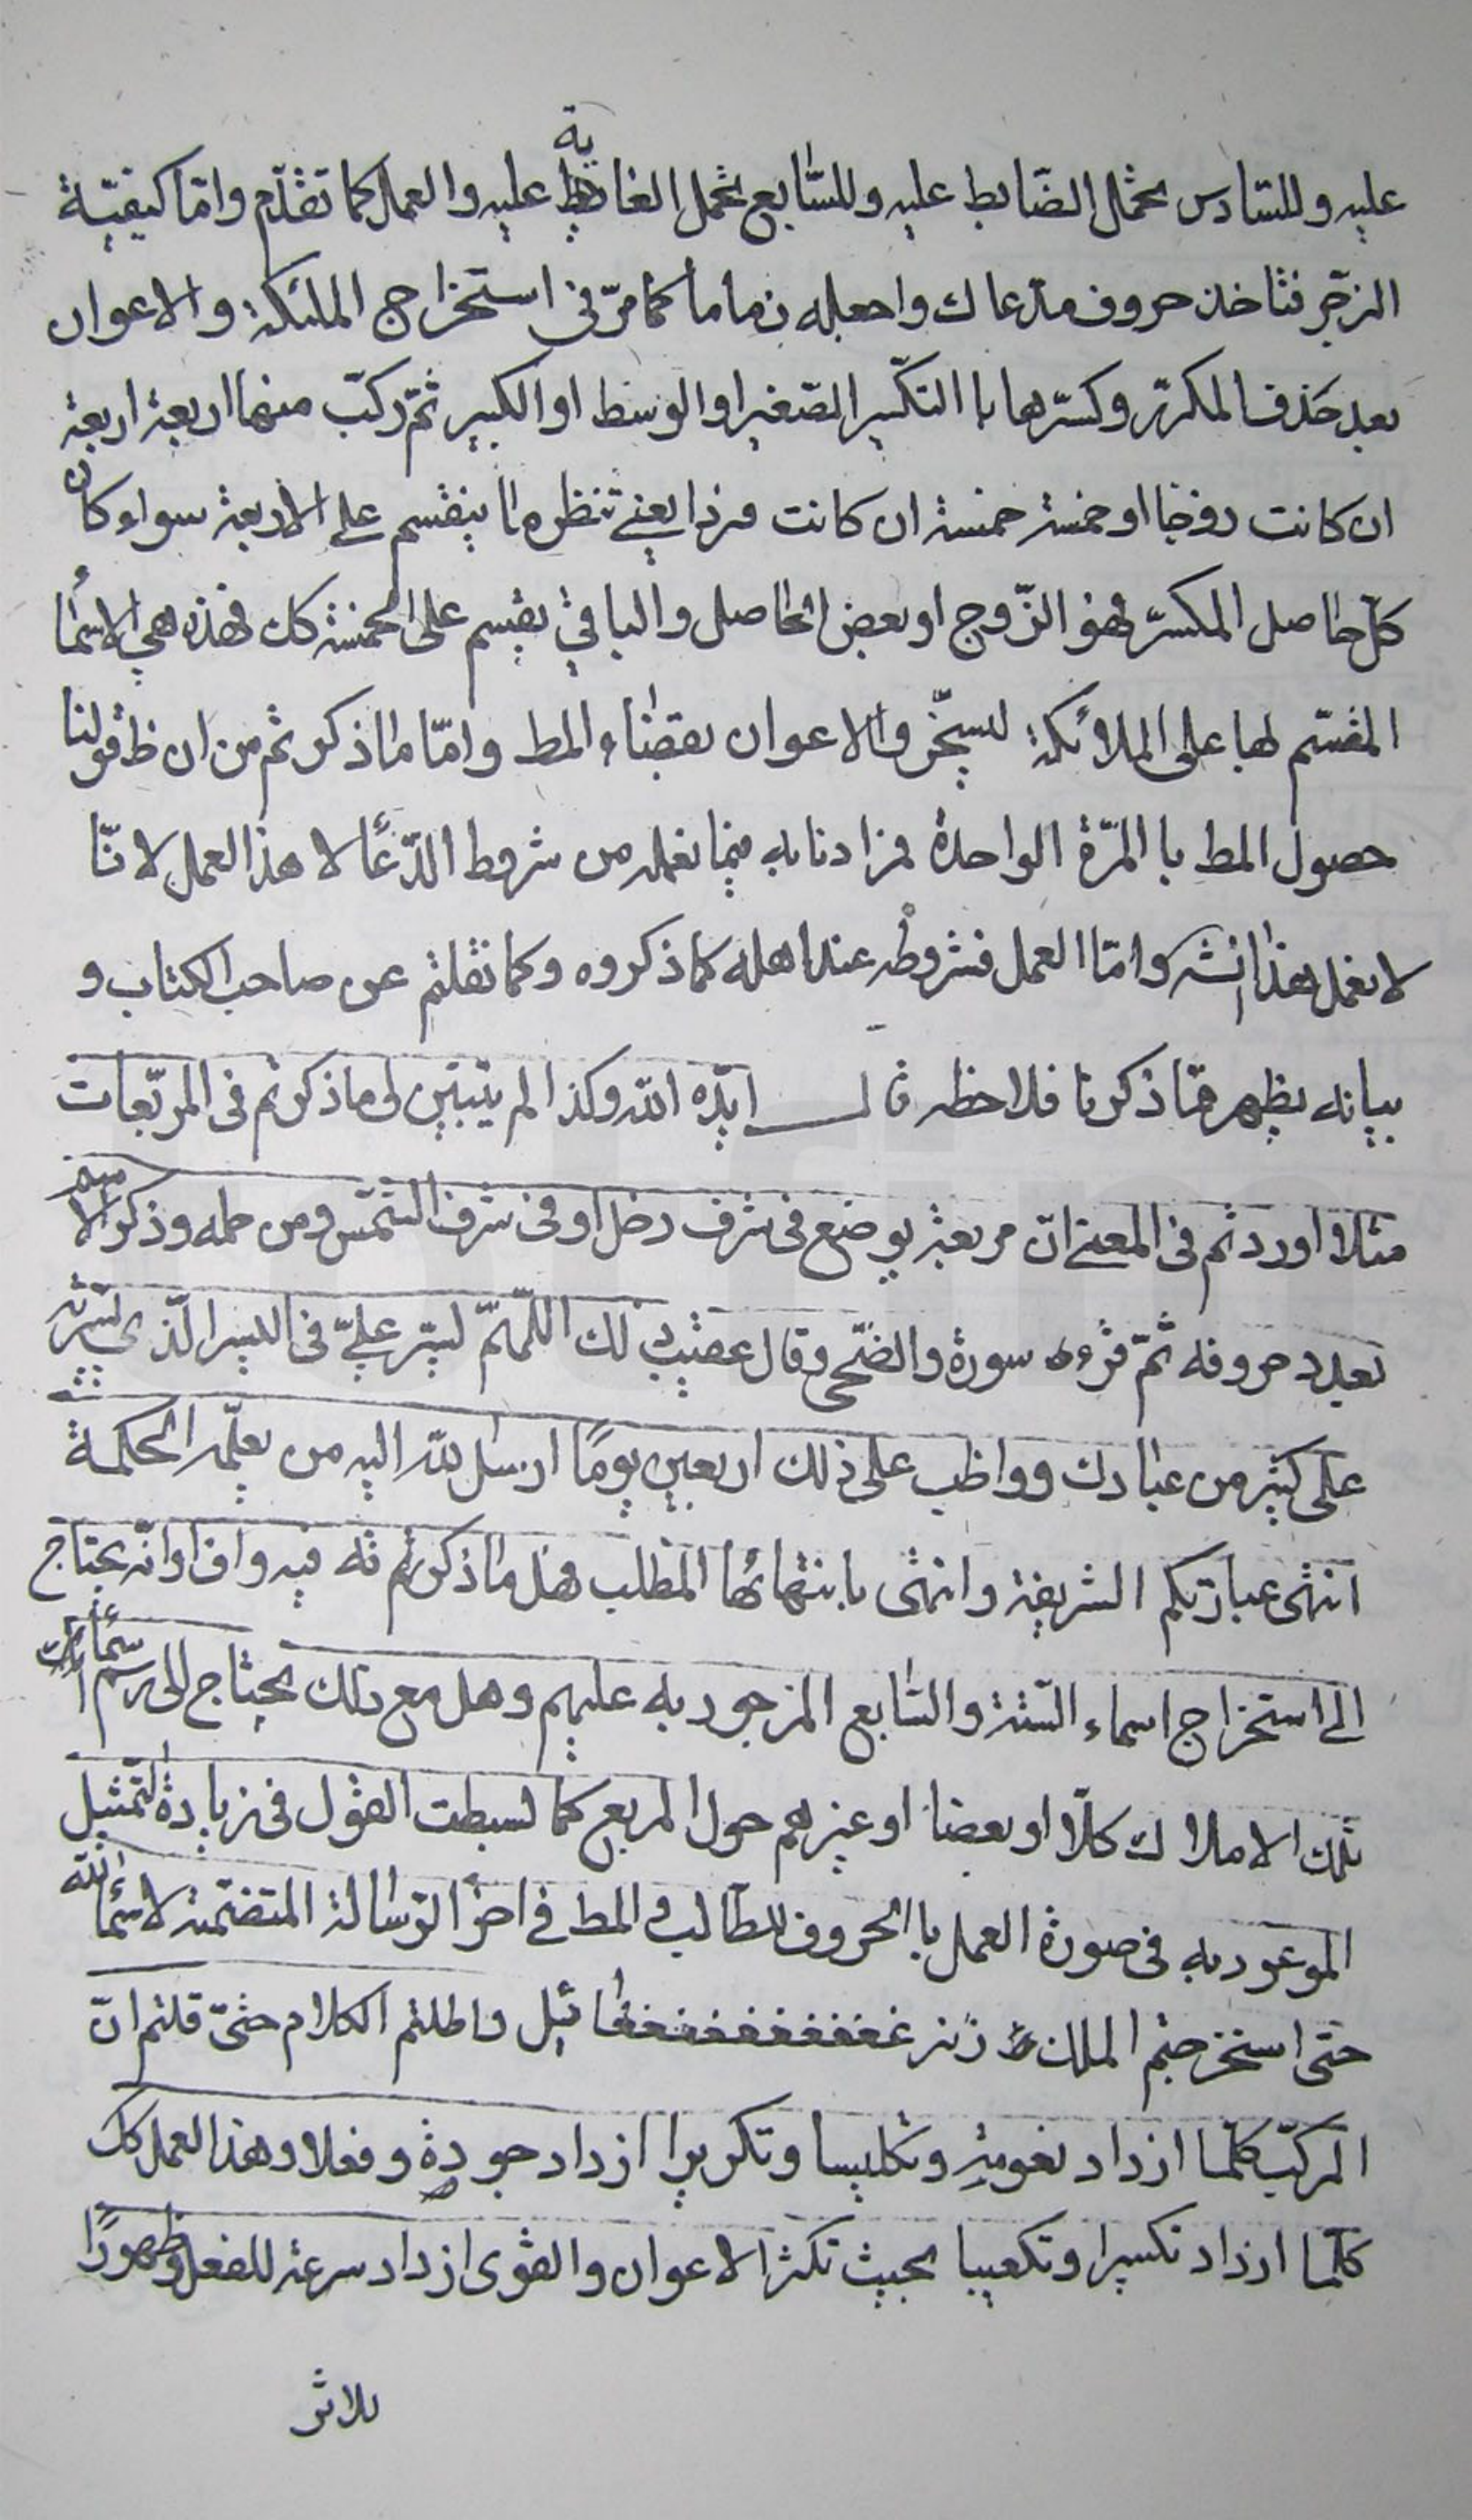 عليه وللسّادس بحمل الضّابط عليه وللسّابع بحمل الغاية عليه والعمل كما تقدّم وامّا كيفيّة
الزجر فتاخذ حروف مدعاك واجعله زماما كما مرّ فى استخراج الملئكة والاعوان
بعد حذف المكرّر وكسّرها با التكسير الصّغير او الوسط او الكبير ثمّ ركّب منهما اربعة اربعة
ان كانت زوجا او خمسة خمسة ان كانت فردا يعنے تنظره ما ينقسم علے الاربعة سواء كان
كلّ حاصل المكسرّ فهو الزّوج او بعض الحاصل والباقي يقسم على الخمسة كك فهذه هي الاسُمٰا
المقسّم لها على الملائكة لسخّر والاعوان بقضاء المط وامّا ماذكرتم من ان ظ قولنا
حصول المط با المرّة الواحدة فمرادنا به فيما نعمله من شروط الدّعا لا هذا العمل لانّا
لا نعمل هذا الشے وامّا العمل فشروطه عند اهله كما ذكروه وكما نقلتم عن صاحب الكتاب و
بيانه يظهر ممّا ذكرنا فلاحظه قال ايّده اللّه وكذا لم يتبيّن لى ماذكرتم فى المربّعات
مثلا اوردتم فى المعنے انّ مربعة يوضع فى شرف زحل او فى شرف الشّمس ومن حمله وذكر الاسم
بعدد حروفه ثمّ قرءه سورة والضّحى وقال عقيب ذلك اللّهمّ ليسّر علىّ فى اليسر الّذى يسّرته
على كثير من عبادك وواظب على ذلك اربعين يومًا ارسل اللّه اليه من يعلّمه الحكمة
انتهى عبارتكم الشريفة وانتهى بانتهائها المطلب فهل ماذكرتم فيه واف او انّه يحتاج
الے استخراج اسماء السّتّة والسّابع المزجور به عليهم وهل مع ذلك يحتاج الى رسم اسمٰاء
تلك الاملاك كلّا او بعضا او غيرهم حول المربع كما بسطت القول فى زيادة التّمثيل
الموعود به فى صورة العمل با الحروف للطّالب والمط فے اخر الرّسٰالة المتضمّنة لاسمٰاء اللّه
حتى استخرجتم الملك واطلتم الكلام حتىّ قلتم انّ
المركّب كلّما ازداد تعوية وتكليسا وتكريرا ازداد جودة وفعلا وهذا العمل كك
كلّما ازداد تكسيرا وتكعيبا بحيث تكثر الاعوان والقوى ازداد سرعة للفعل وظهورًا
للاثر